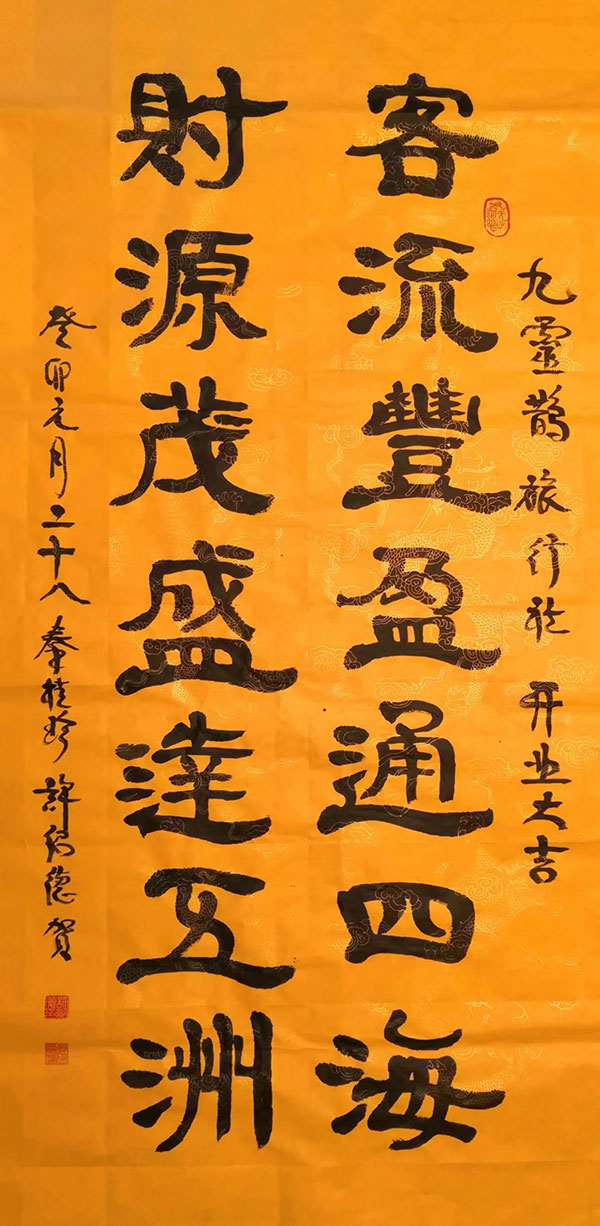 九靈鹊旅行社 开业大吉
客流豐盈通四海
財源茂盛達五洲
癸卯元月二十八 秦桂珍 許德賀